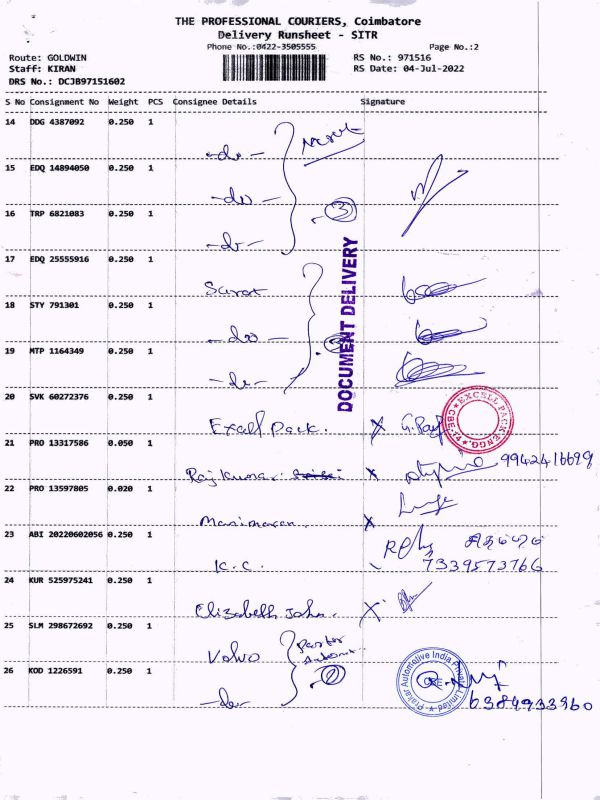 THE PROFESSIONAL COURIERS, Coimbatore
Delivery Runsheet - SITR
Phone No.:0422-3505555 Page No.:2
Route: GOLDWIN RS No.: 971516
Staff: KIRAN RS Date: 04-Jul-2022
DRS No.: DCJB97151602
S No Consignment No Weight PCS Consignee Details Signature
14 DDG 4387092 0.250 1
-do-
15 EDQ 14894050 0.250 1
-do-
16 TRP 6821083 0.250 1
3
-do-
DOCUMENT DELIVERY
17 EDQ 25555916 0.250 1
18 STY 791301 0.250 1
-do-
19 MTP 1164349 0.250 1
-do-
20 SVK 60272376 0.250 1
Excell Pack. X
EXCELL PACK ENGG. CBE
21 PRO 13317586 0.050 1
Raj Kumar x 9942416699
22 PRO 13597805 0.020 1
Manimaran x
23 ABI 20220602056 0.250 1
K.C. 7339573766
24 KUR 525975241 0.250 1
Elizabeth John. X
25 SLM 298672692 0.250 1
Volvo
26 KOD 1226591 0.250 1
2
-do-
Automotive India Private Limited
6384933960